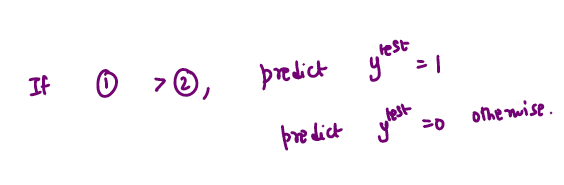 If ① > ②, predict y^test = 1
predict y^test = 0 otherwise.